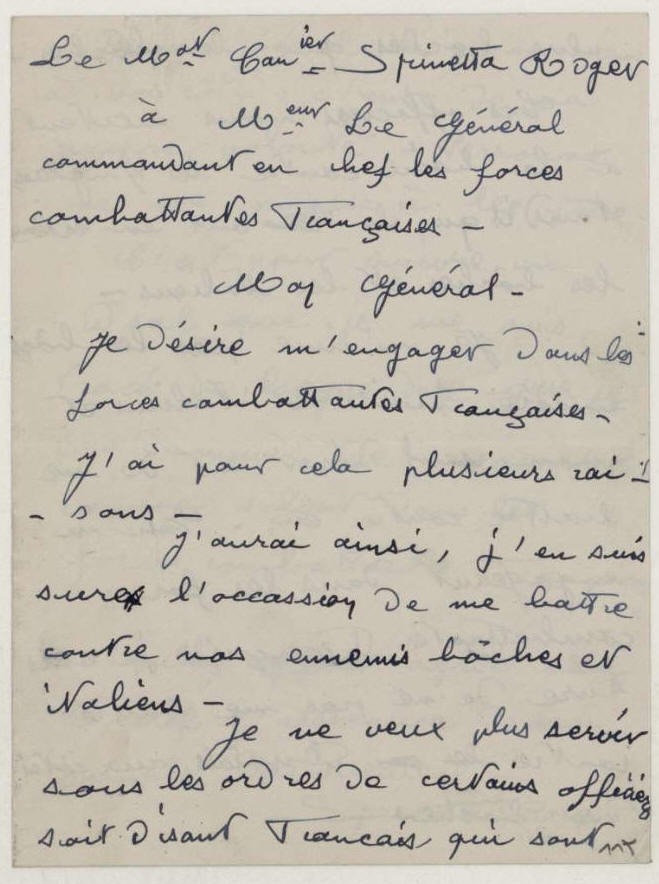 Le M^at Can^ier Spinetta Roger
à M^eur Le Général
commandant en hef les forces
combattantes Françaises -
Mon Général -
Je désire m'engager dans les
forces combattantes Françaises -
J'ai pour cela plusieurs rai -
- sons -
J'aurai ainsi, j'en suis
sure l'occassion de me battre
contre nos ennemis bôches et
italiens -
Je ne veux plus servir
sous les ordres de certains officiers
soit disant Francais qui sont